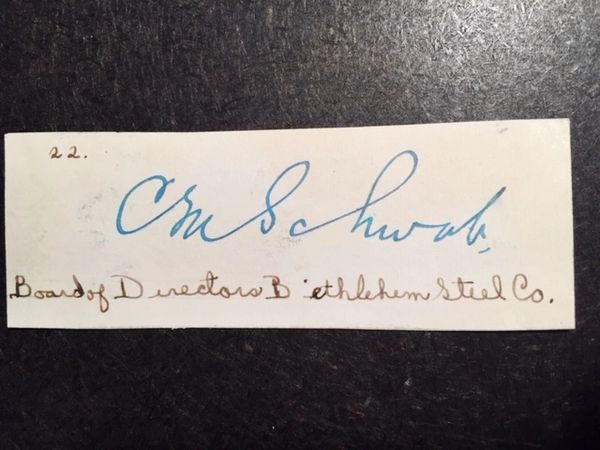 22.
C M Schwab.
Board of Directors Bethlehem Steel Co.